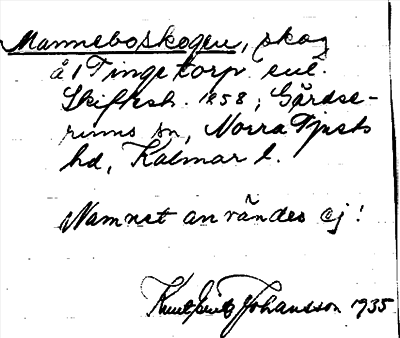 Manneboskogen, skog
å 1 Tingetorp enl.
Skiftesh. 1858; Gärdse-
rums sn, Norra Tjusts
hd, Kalmar l.
Namnet användes ej!
Knut Johansson 1935